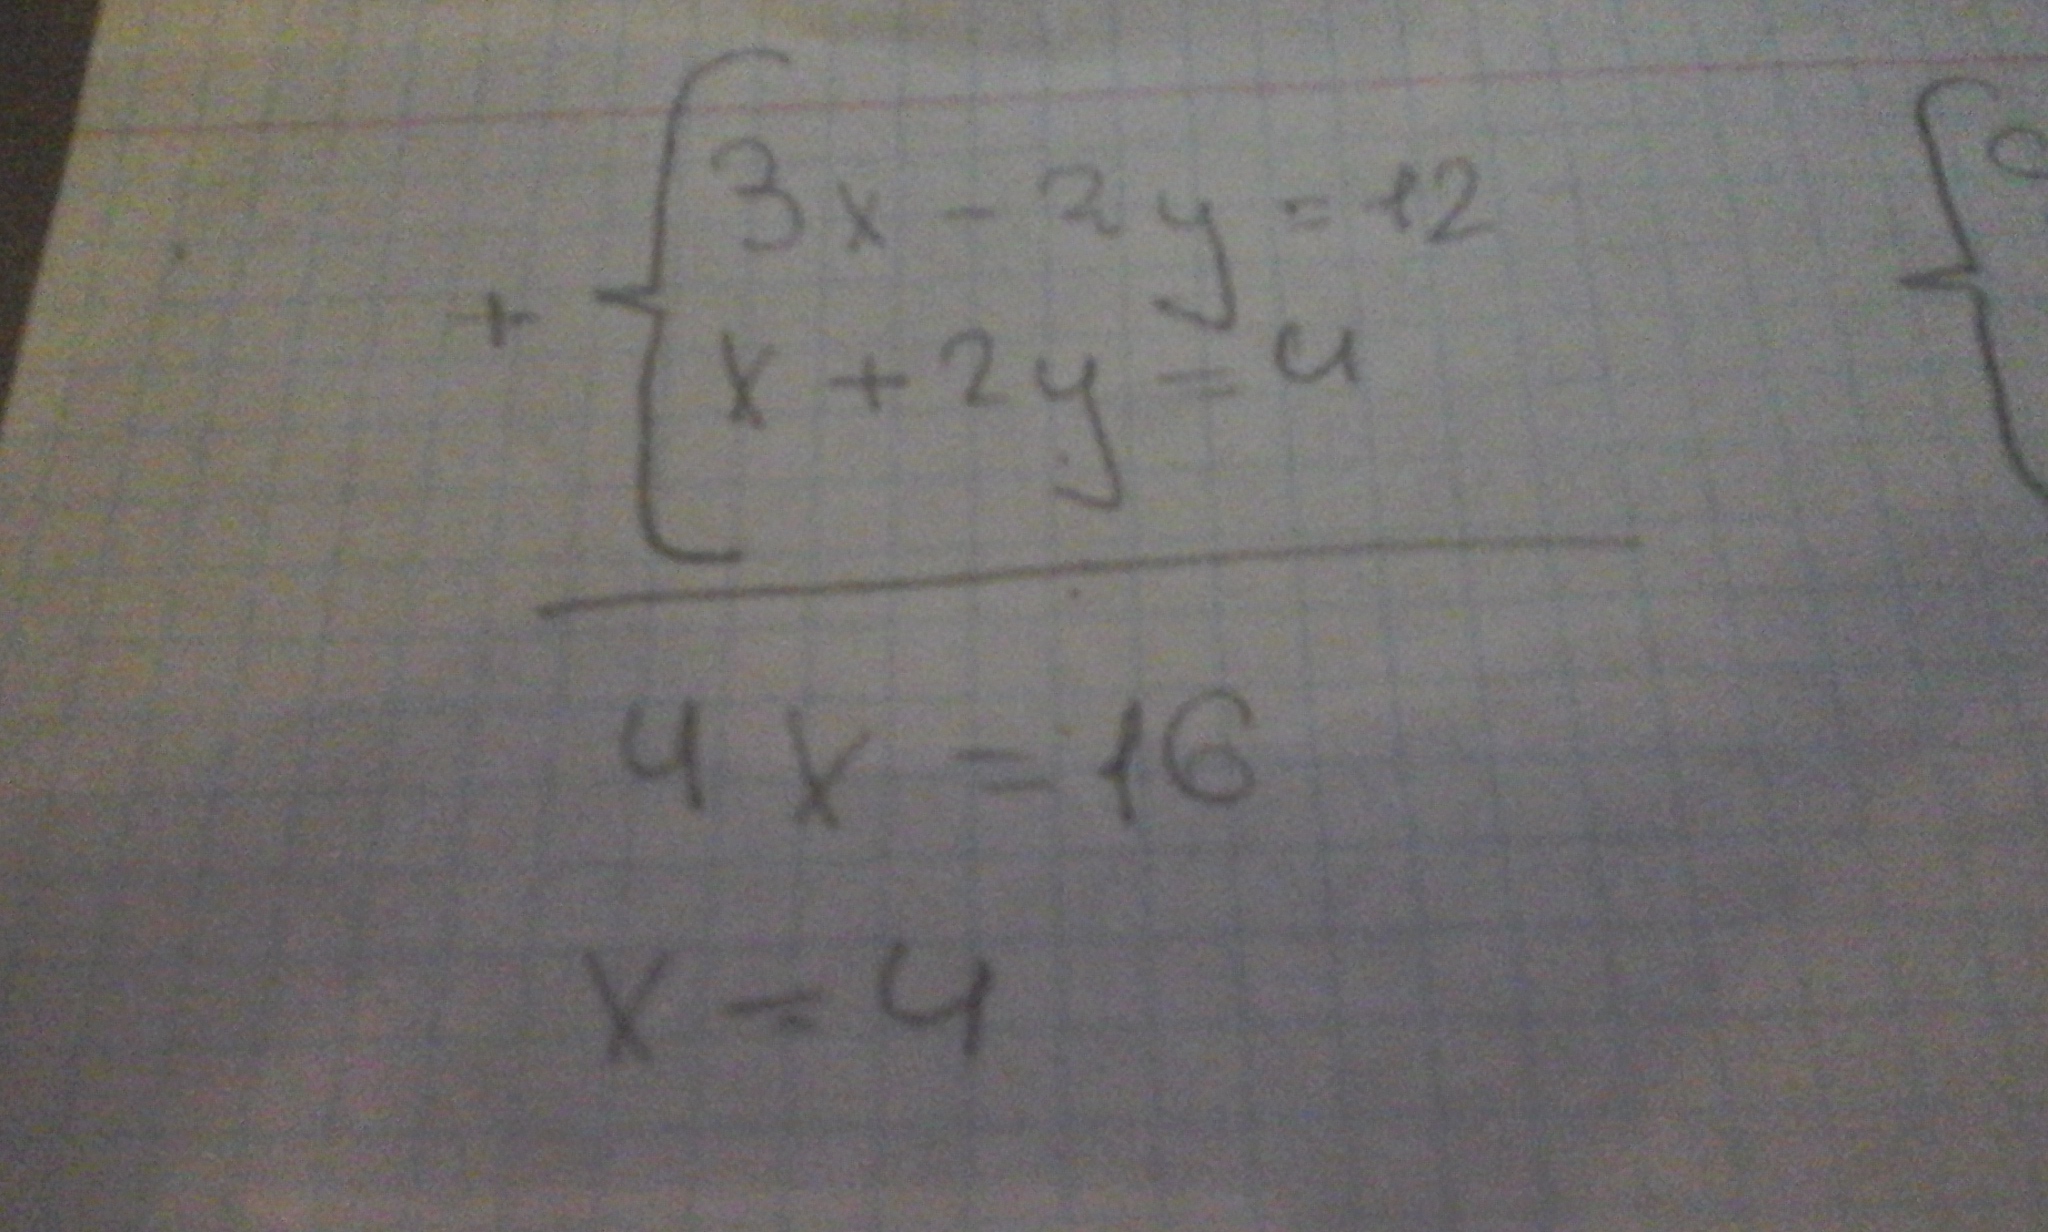 3x - 2y = 12
+ {
x + 2y = 4
4x = 16
x = 4